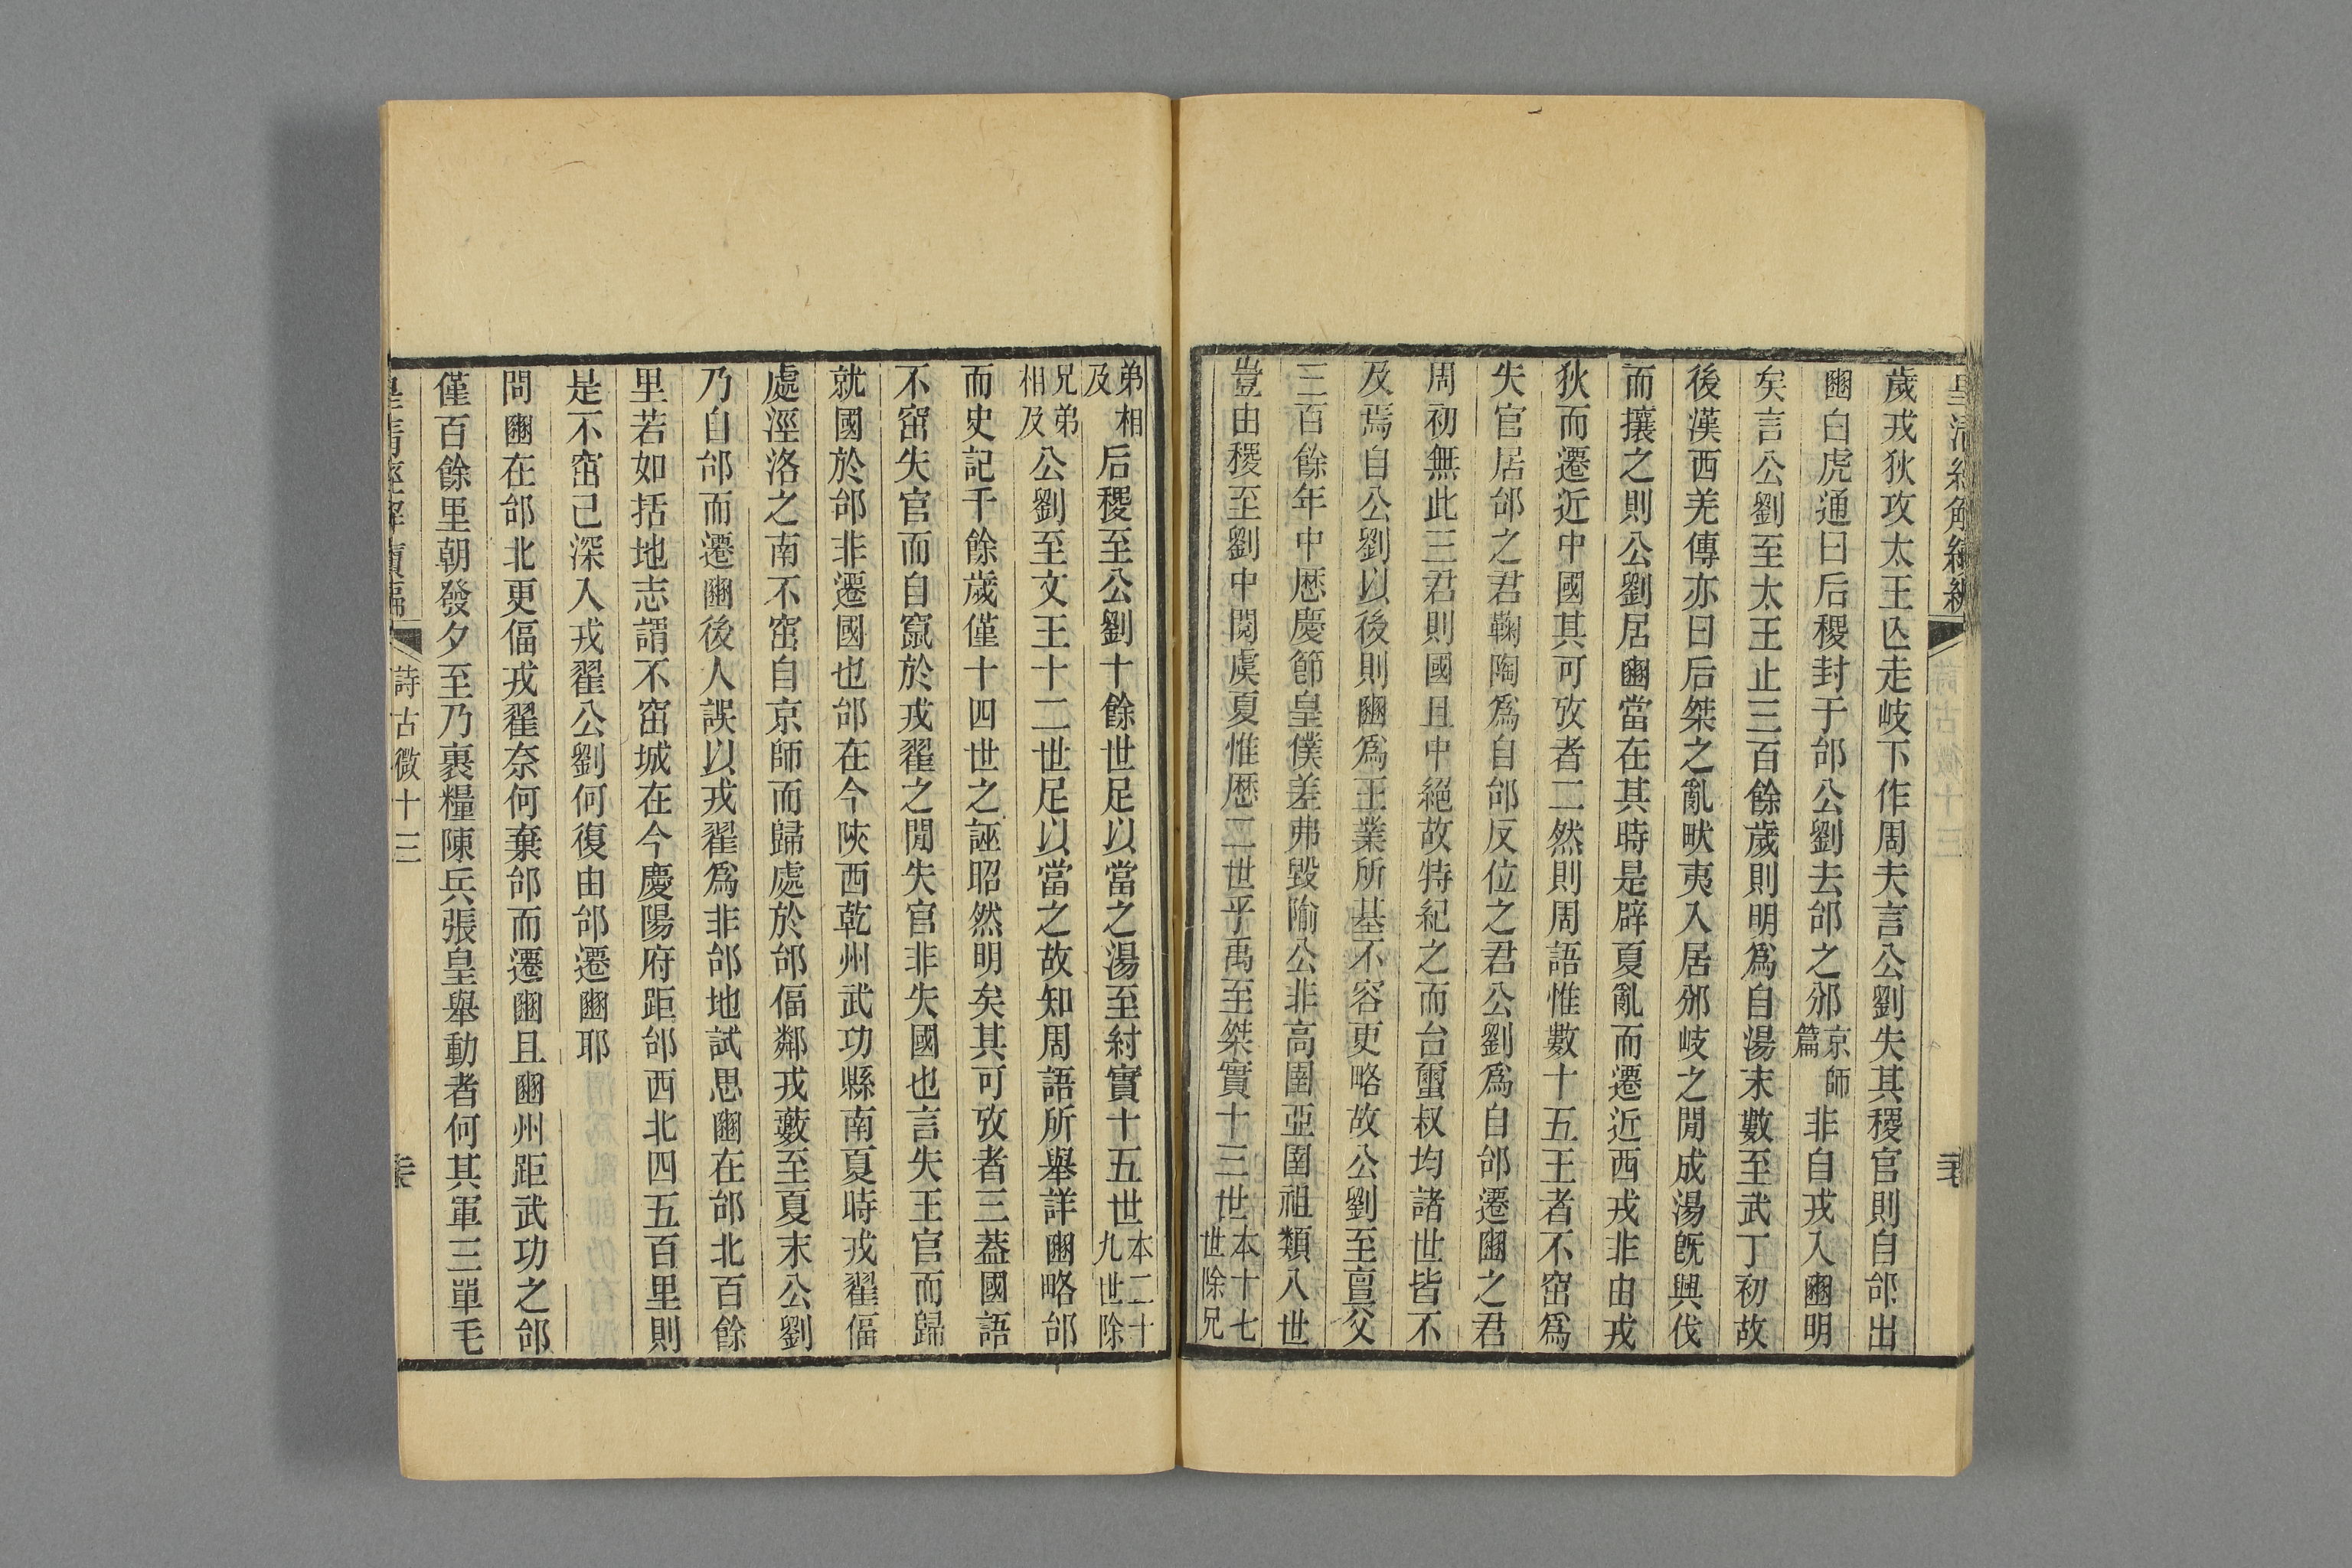 歲戎狄攻太王亾走岐下作周夫言公劉失其稷官則自邰出
豳白虎通曰后稷封于邰公劉去邰之邠京師篇非自戎入豳明
矣言公劉至太王止三百餘歲則明爲自湯末數至武丁初故
後漢西羌傳亦曰后桀之亂畎夷入居邠岐之閒成湯旣興伐
而攘之則公劉居豳當在其時是辟夏亂而遷近西戎非由戎
狄而遷近中國其可攷者二然則周語惟數十五王者不窋爲
失官居邰之君鞠陶爲自邰反位之君公劉爲自邰遷豳之君
周初無此三君則國且中絕故特紀之而台璽叔均諸世皆不
及焉自公劉以後則豳爲王業所基不容更略故公劉至亶父
三百餘年中歷慶節皇僕差弗毀隃公非高圉亞圉祖類八世
豈由稷至劉中閱虞夏惟歷二世乎禹至桀實十三世本十七世除兄
弟相及后稷至公劉十餘世足以當之湯至紂實十五世本二十九世除
兄弟相及公劉至文王十二世足以當之故知周語所舉詳豳略邰
而史記千餘歲僅十四世之誣昭然明矣其可攷者三葢國語
不窋失官而自竄於戎翟之閒失官非失國也言失王官而歸
就國於邰非遷國也邰在今陝西乾州武功縣南夏時戎翟偪
處涇洛之南不窋自京師而歸處於邰偪鄰戎藪至夏末公劉
乃自邰而遷豳後人誤以戎翟爲非邰地試思豳在邰北百餘
里若如括地志謂不窋城在今慶陽府距邰西北四五百里則
是不窋已深入戎翟公劉何復由邰遷豳耶
問豳在邰北更偪戎翟奈何棄邰而遷豳且豳州距武功之邰
僅百餘里朝發夕至乃裹糧陳兵張皇舉動者何其軍三單毛
皇清經解續編
詩古微十三